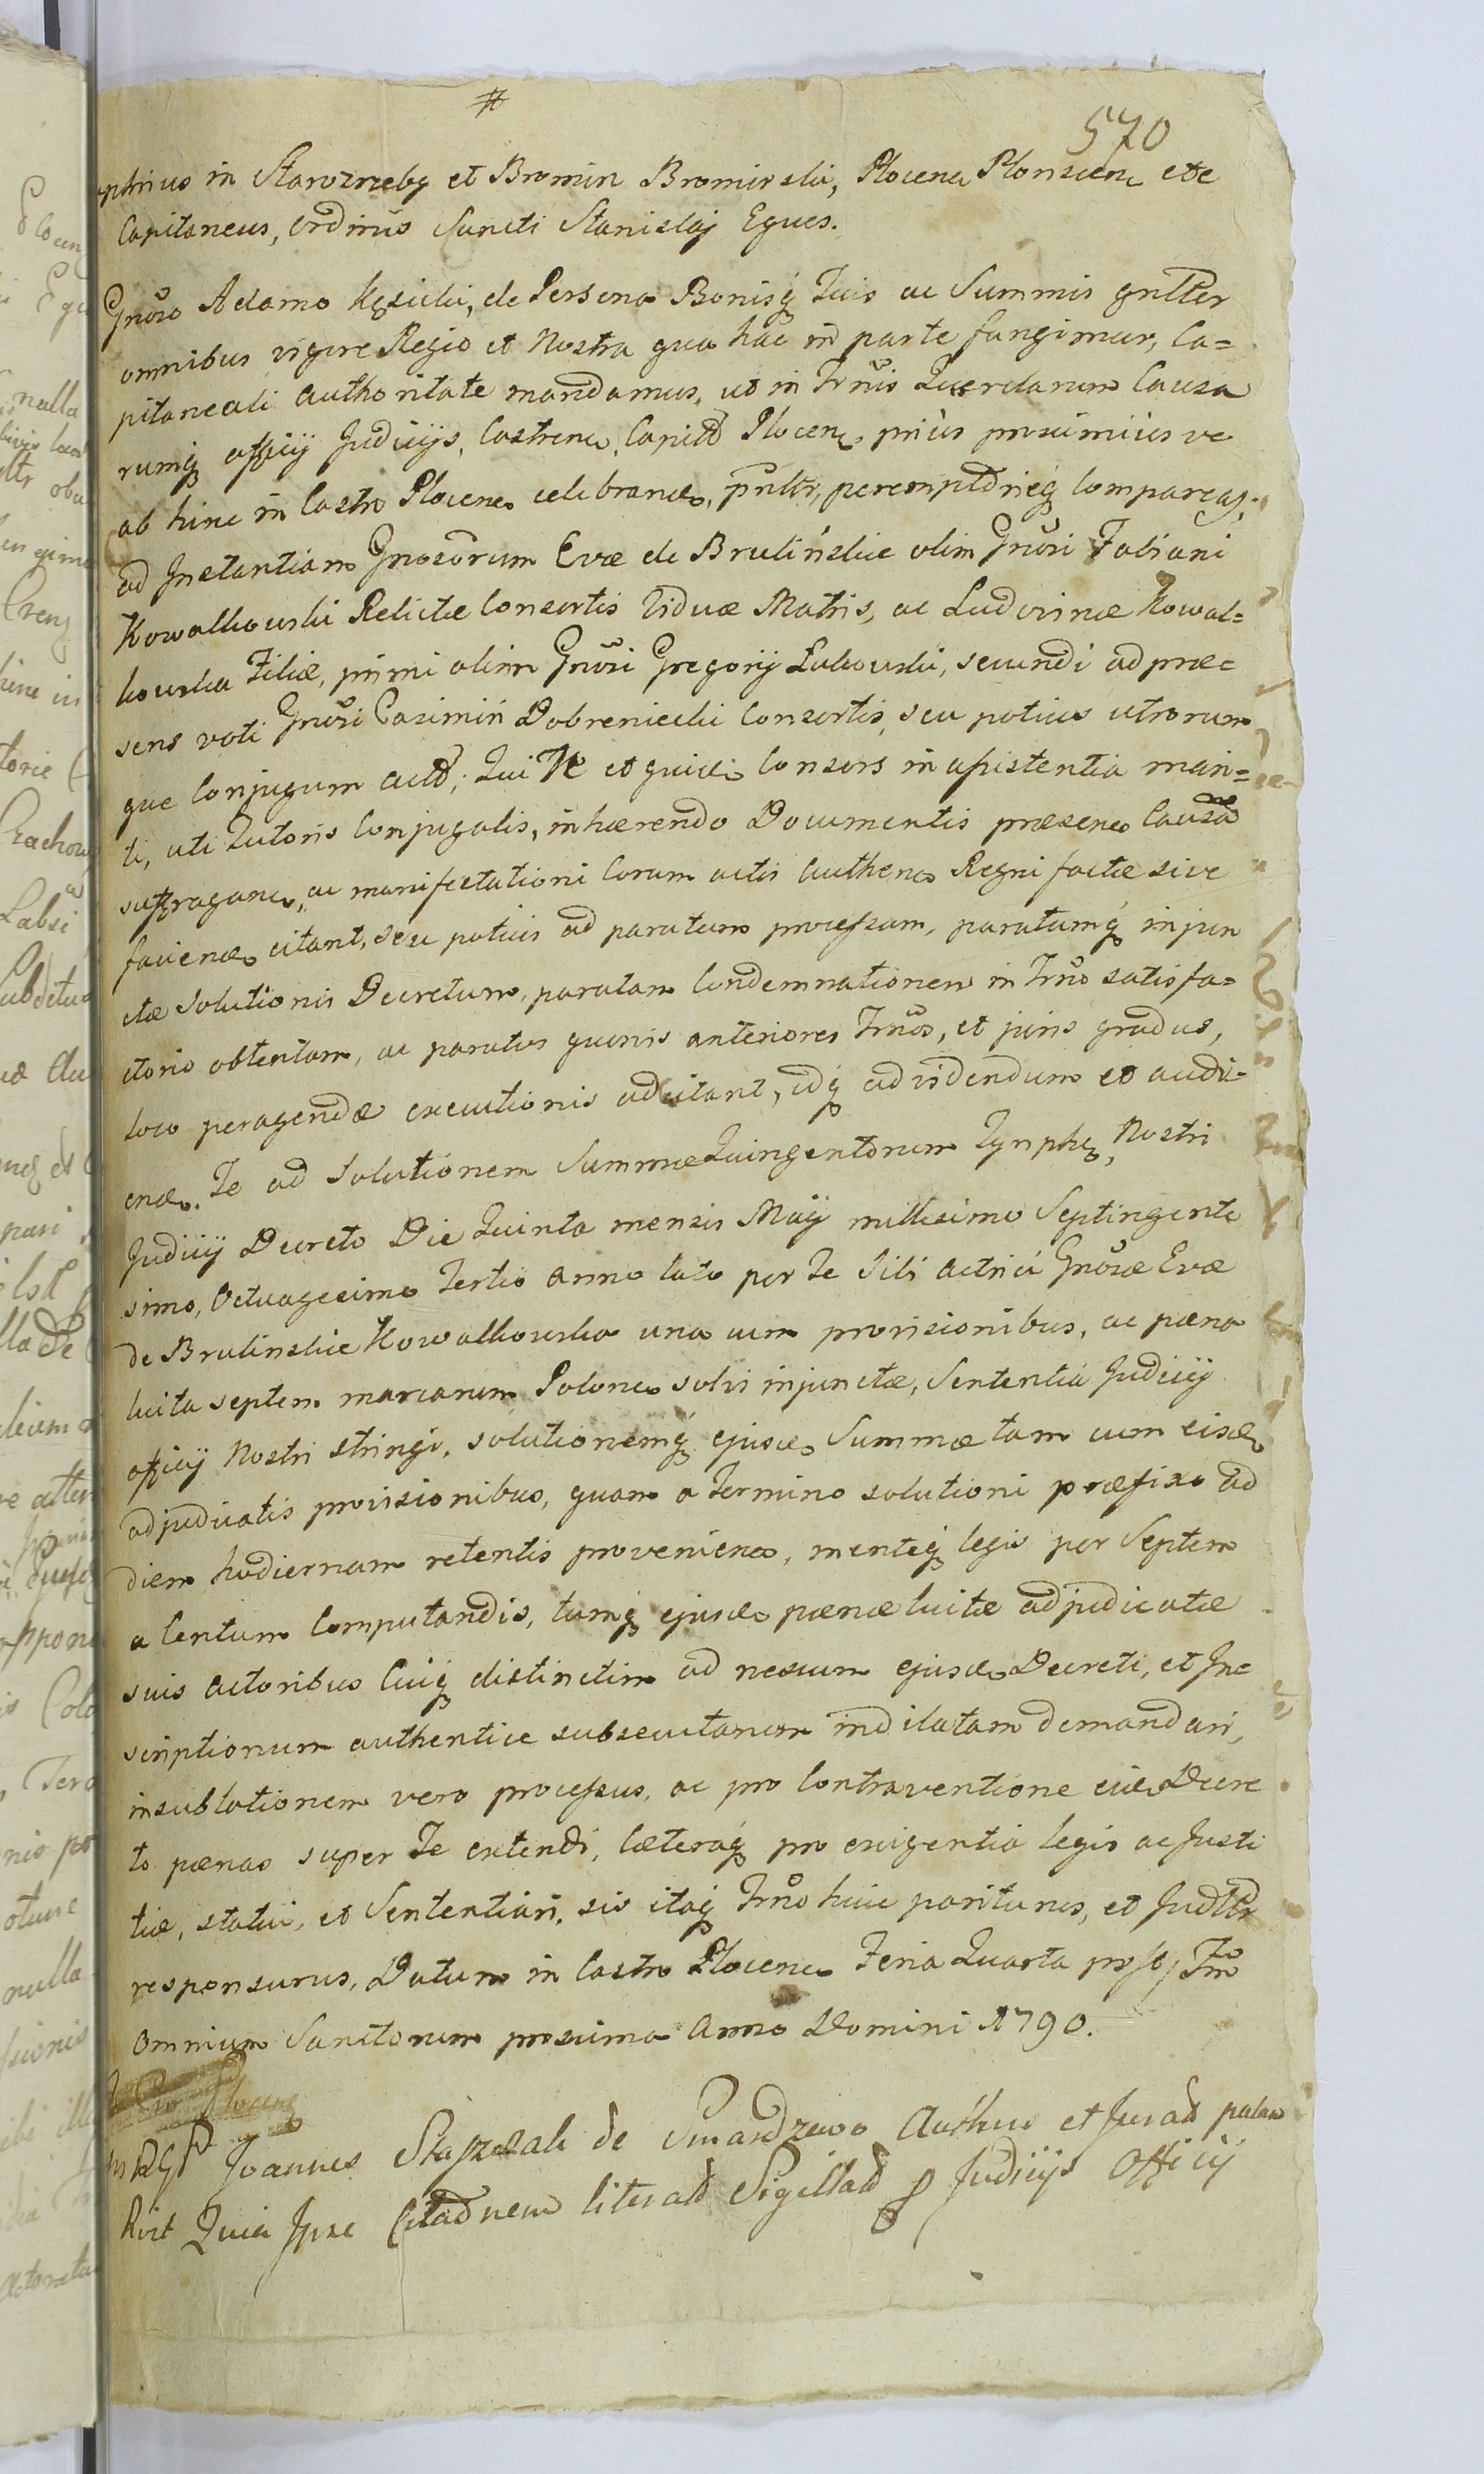 #
570
phinus in Starozreby et Bromin Bromirski, Plocen Plonscen etc
Capitaneus, Ordinis Sancti Stanislaj Eques.
Gnoso Adamo Kęsicki, de Persona Bonisq Tuis ac Summis gnltter
omnibus vigore Regio et Nostra qua hac in parte fungimur, Ca=
pitaneali Authoritate mandamus, ut in Trnis Querelarum Causa
rumq officij Judicijs, Castren, Capitt Plocen, prius proximius ve
ab hinc in Castro Plocen celebrand, pnltr, peremptorieq Compareas,
ad Instantiam Gnosorum Evæ de Brulińskie olim Gnosi Fabiani
Kowalkowski Relictæ Consortis Viduæ Matris, ac Ludovinæ Kowal=
kowska Filiæ, primi olim Gnosi Gregorij Łukowski, secundi ad præ=
sens voti Gnosi Casimiri Dobreniecki Consortis, seu potius utrorum
que Conjugum Actt; Qui Te et quid Consors in assistentia mari=
ti, uti Tutoris Conjugalis, inhærendo Documentis præsen Causæ
suffragan, ac manifestationi Coram actis Authen Regni factæ sive
faciend citant, seu potius ad paratum processum, paratumq injun
ctæ Solutionis Decretum, paratam Condemnationem in Trno satisfa=
ctorio obtentam, ac paratos quosvis anteriores Trnos, et juris gradus,
loco peragendæ executionis adcitant, idq ad videndum et audi=
end. Te ad Solutionem Summæ Quingentorum Tymph, Nostri
Judicij Decreto Die Quinta mensis Maij millesimo Septingente
simo, Octuagesimo Tertio Anno lato per Te Sibi Actrici Gnosæ Evæ
de Brulinskie Kowalkowska una cum provisionibus, ac pæna
luita septem marcarum Polon solvi injunctæ, Sententia Judicij
officij Nostri stringi, solutionemq ejusd Summæ tam cum eisd
adjudicatis provisionibus, quam a Termino solutioni præfixo ad
diem hodiernam retentis provenien, menteq legis per Septem
a Centum Computandis, tumq ejusd pænæ luitæ adjudicatæ
suis Actoribus Cuiq distinctim ad nexum ejusd Decreti, et Ins
criptionum authentice subsecutarum indilatam demandari,
in sublationem vero processus, ac pro Contraventione eid Decre
to pænas super Te extendi, Cæteraq pro exigentia legis ac Justi
tiæ, statui, et Sententiari, sis itaq Trno huic pariturus, et Judltr
responsurus, Datum in Castro Plocen Feria Quarta post Fm
Omnium Sanctorum proxima Anno Domini 1790.
Joannes de Smardzewo Authus et Jurat palam
Rint Quia Ipse Citaonem literatt Sigillatt p Judicijs Officij